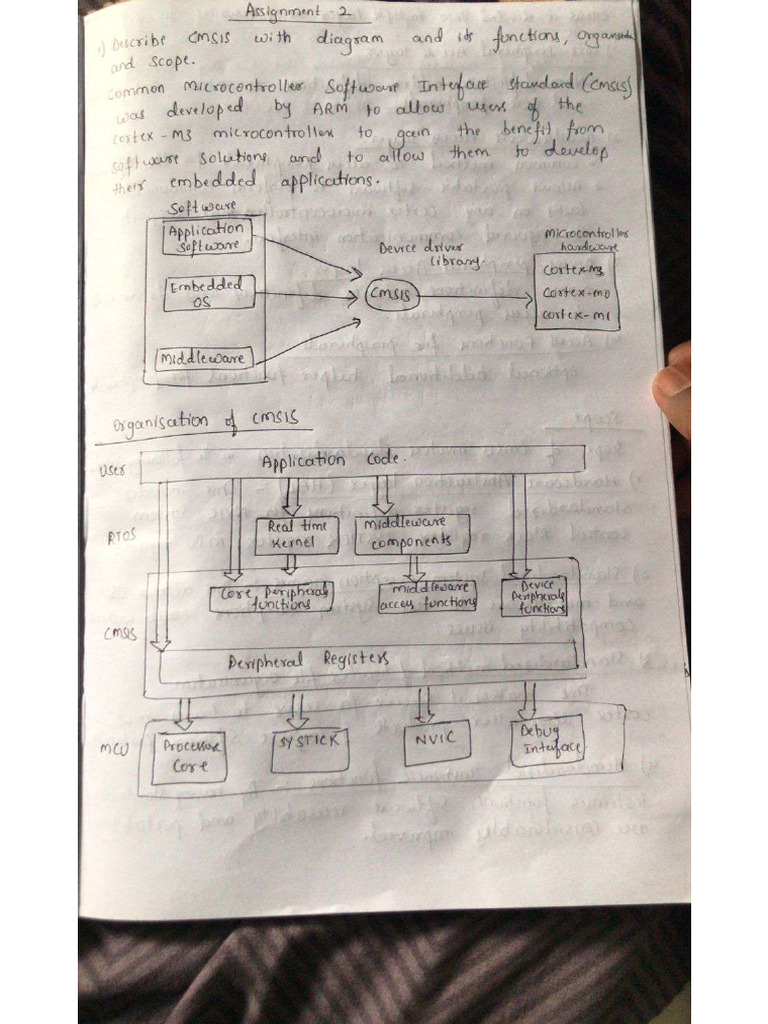 Assignment - 2
1) Describe CMSIS with diagram and its functions,
and scope.
Common Microcontroller Software Interface Standard (CMSIS)
was developed by ARM to allow users of the
cortex-M3 microcontroller to gain the benefit from
software solutions and to allow them to develop
their embedded applications.
Software
Application
software
Embedded
OS
Middleware
Device driver
library.
CMSIS
Microcontroller
hardware
cortex-m3
cortex-m0
cortex-m1
Organisation of CMSIS
User
Application Code.
RTOS
Real time
Kernel
Middleware
components
CMSIS
Core Peripherals
functions
Middleware
access functions
Device
Peripherals
functions
Peripheral Registers
MCU
Processor
Core
SYSTICK
NVIC
Debug
Interface